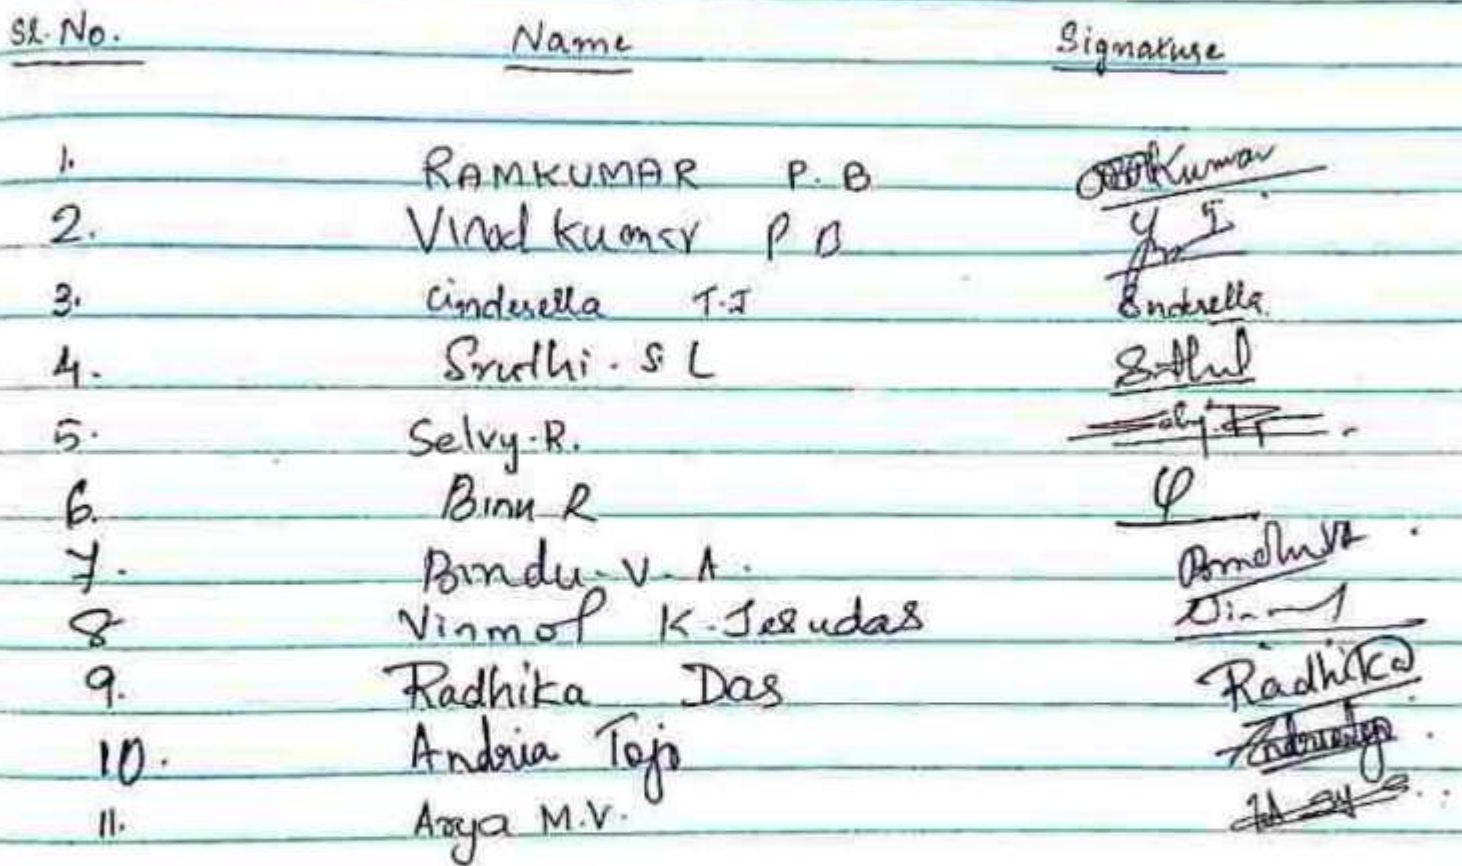 Sl. No. Name Signature
1. RAMKUMAR P. B Kumar
2. Vinod Kumar P B
3. Cinderella T.J Cinderella
4. Sruthi. S L
5. Selvy. R. Selvy. R
6. Binu R
7. Bindu. V. A. Bindu VA
8 Vinmol K. Jesudas
9. Radhika Das Radhika
10. Andria Tojo Andriatojo
11. Arya M.V.